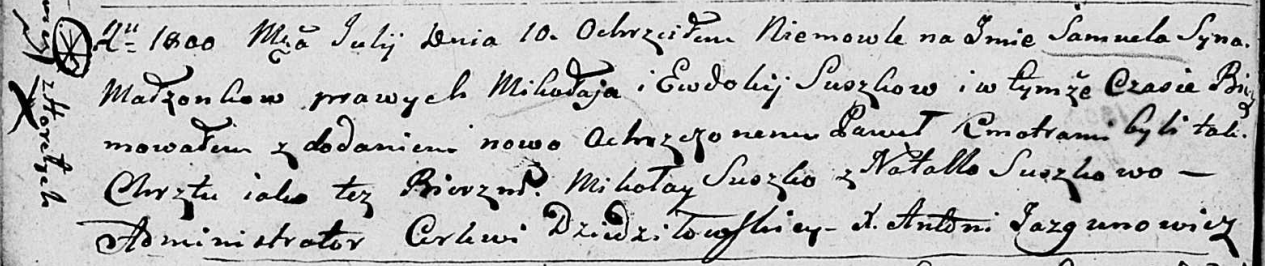 Ru 1800 Mca Julij Dnia 10. Ochrzciłem Niemowle na Imie Samuela Syna.
Małżonkow prawych Mikołaja i Ewdokij Suszkow i w tymże Czasie Bierz
mowałem z dodaniem nowo Ochrzczonemu Paweł Kmotrami byli tak.
Chrztu iako tez Bierzm. Mikołay Suszko z Natallo Suszkowo —
Administrator Cerkwi Dziedziłowskiey - X. Antoni Jazgunowicz
z Horełych